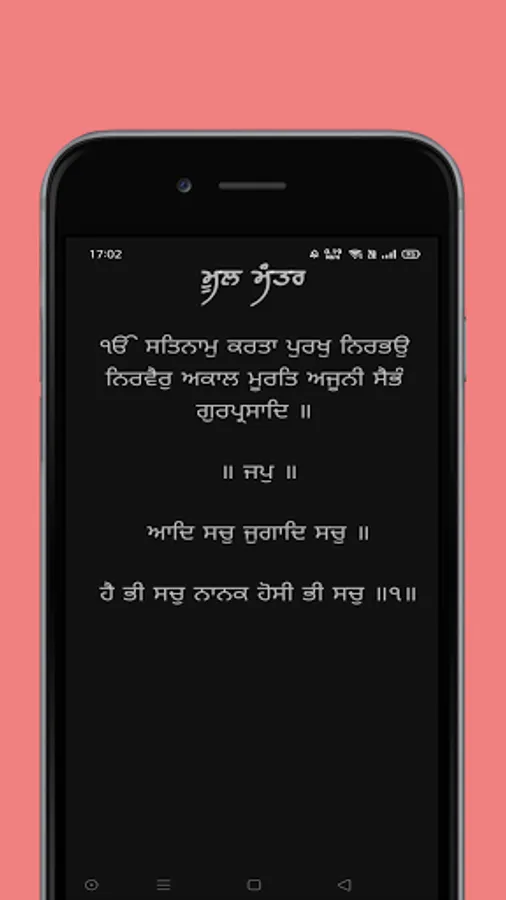 17:02
ਮੂਲ ਮੰਤਰ
ੴ ਸਤਿਨਾਮੁ ਕਰਤਾ ਪੁਰਖੁ ਨਿਰਭਉ
ਨਿਰਵੈਰੁ ਅਕਾਲ ਮੂਰਤਿ ਅਜੂਨੀ ਸੈਭੰ
ਗੁਰਪ੍ਰਸਾਦਿ ॥
॥ ਜਪੁ ॥
ਆਦਿ ਸਚੁ ਜੁਗਾਦਿ ਸਚੁ ॥
ਹੈ ਭੀ ਸਚੁ ਨਾਨਕ ਹੋਸੀ ਭੀ ਸਚੁ ॥੧॥